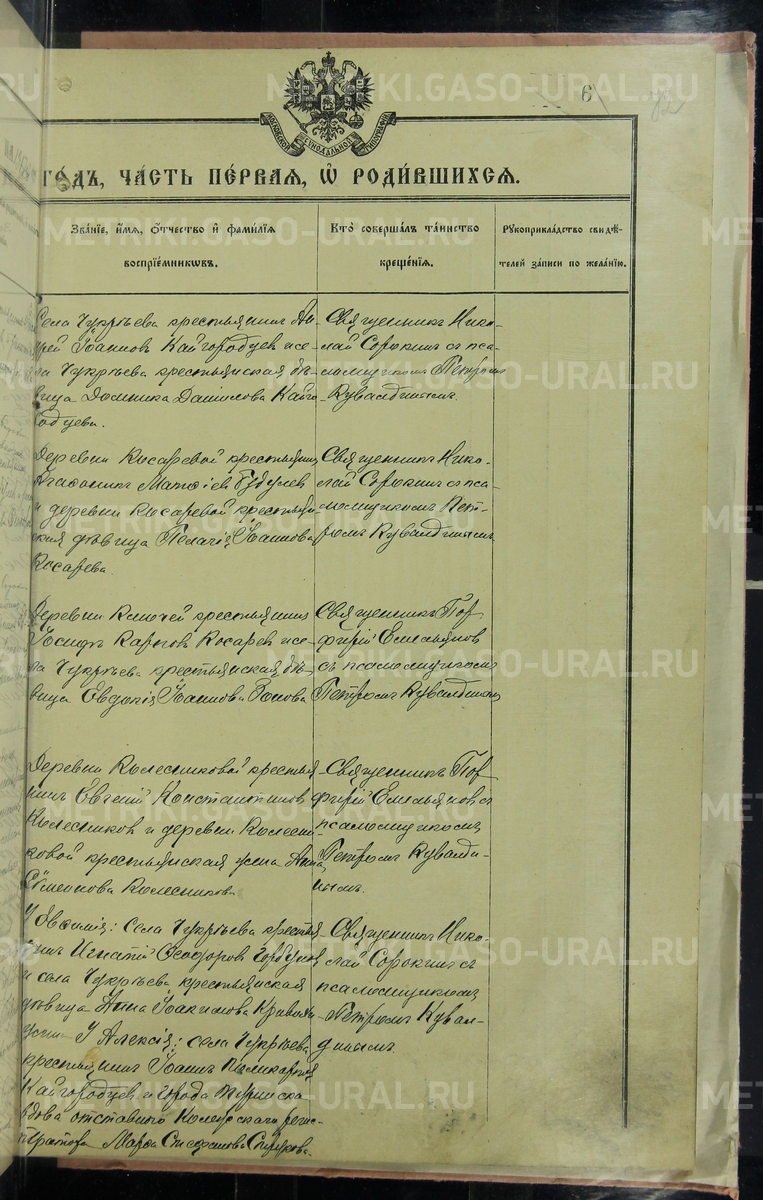 6
московской сѵнодальной типографіи
го́дъ, ча́сть пе́рвая, ѡ҆ роди́вшихся.
Зва́нїе, и҆́мя, ѻ҆́тчество и҆ фами́лїя воспрїе́мникѡвъ.
Кто̀ соверша́лъ та́инство креще́нїя.
Рꙋкоприкла́дство свидѣ́телей за́писи по жела́нїю.
Села Чукрѣева крестьянинъ Ан-
рей Іоанновъ Кайгородцевъ и се-
ла Чукрѣева крестьянская дѣ-
вица Домника Данилова Кайго
родцева.
Священникъ Нико-
лай Сорокинъ съ пса-
ломщикомъ Петромъ
Кувалдинымъ.
Деревни Косаревой крестьянинъ
Агафоникъ Матѳіевъ
и деревни Косаревой крестьян-
ская дѣвица Пелагія Іоаннова
Косарева.
Священникъ Нико-
лай Сорокинъ съ пса-
ломщикомъ Пет-
ромъ Кувалдинымъ
Деревни Ключей крестьянинъ
Іосифъ Карповъ Косаревъ и се-
ла Чукрѣева крестьянская дѣ-
вица Евдокія Іоаннова
Священникъ Пор
фирій Емельяновъ
съ псаломщикомъ
Петромъ Кувалдинымъ
Деревни Колесниковой крестья
нинъ Евгеній Константиновъ
Колесниковъ и деревни Колесни-
ковой крестьянская жена Анна
Сѵмеонова Колесникова
Священникъ Пор
фирій Емельяновъ съ
псаломщикомъ
Петромъ Кувалди-
нымъ.
У Евѳимія: села Чукрѣева крестья
нинъ Игнатій Ѳеодоровъ Горбуновъ
и села Чукрѣева крестьянская
дѣвица Анна Іоакимова
У Алексія: села Чукрѣева
крестьянинъ Іоаннъ Поликарповъ
Кайгородцевъ и города Туринска
вдова отставного Коллежскаго регис-
тратора Марѳа Стефанова
Священникъ Нико-
лай Сорокинъ съ
псаломщикомъ
Петромъ Кувал-
динымъ.
METRIKI.GASO-URAL.RU